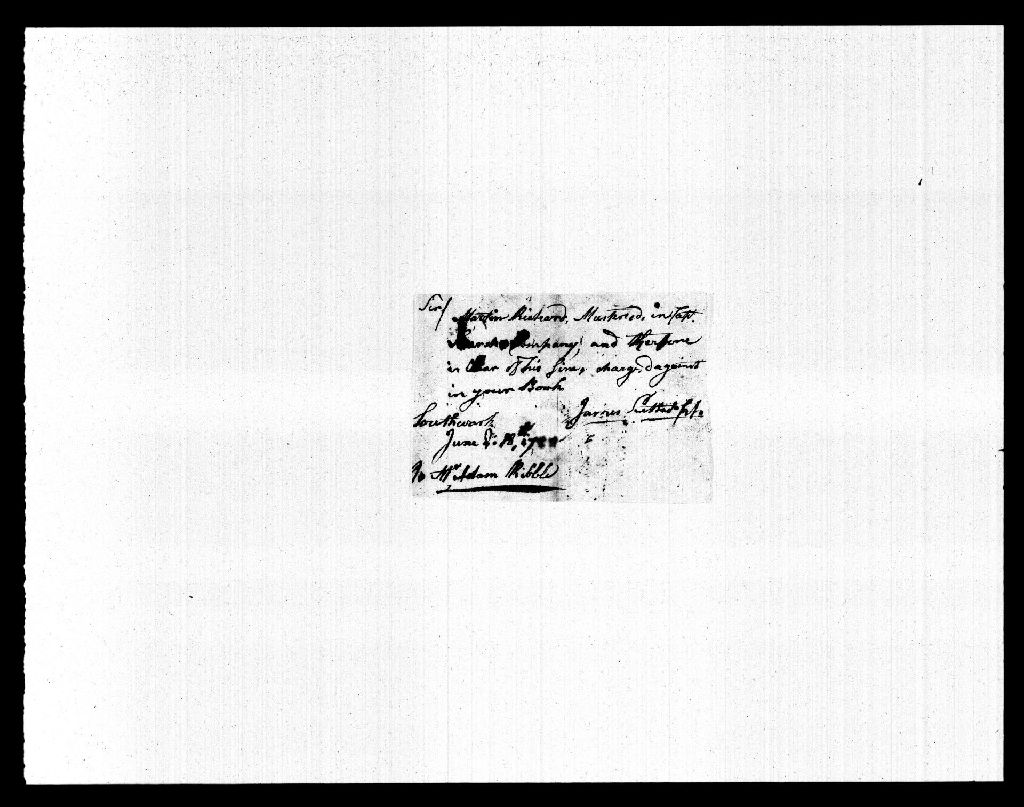 Sir/
Martin Richard, Mustered, in Capt.
Company, and therefore
in Clear of his fine, charged against
in your Book
James
Southwark
June
To Mr. Adam Kibble